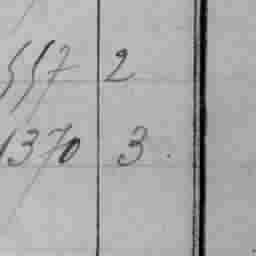 557 2
1370 3.